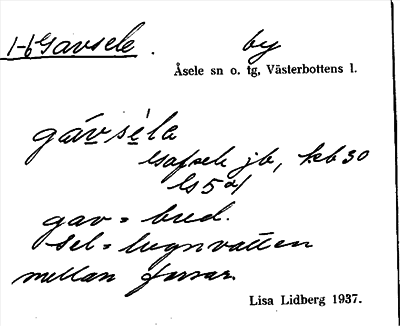 1-6 Gavsele. by
Åsele sn o. tg, Västerbottens l.
gávséla
Gafsele jb, kb 30
ls 5
gav = bred.
sel = lugnvatten
mellan forsar.
Lisa Lidberg 1937.